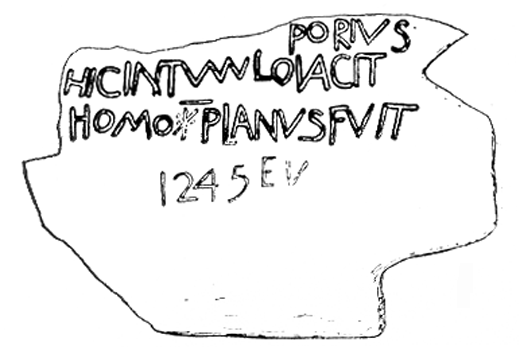 PORIVS
HICINTVMVLOIACIT
HOMO PLANVSFVIT
1245 EV